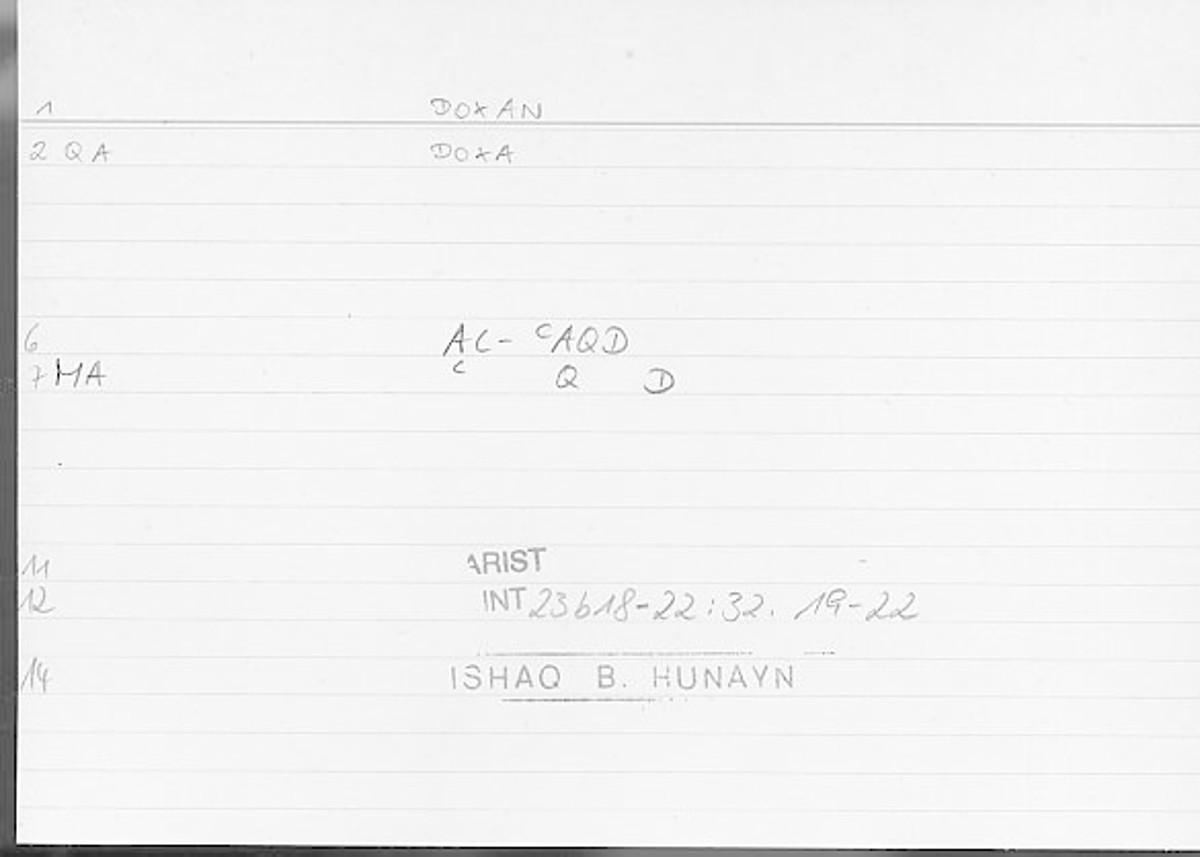 1 DOXAN
2 QA DOXA
6 AL- ʿAQD
7 MA ʿ Q D
11 ARIST
12 INT 23b18-22:32. 19-22
14 ISHAQ B. HUNAYN